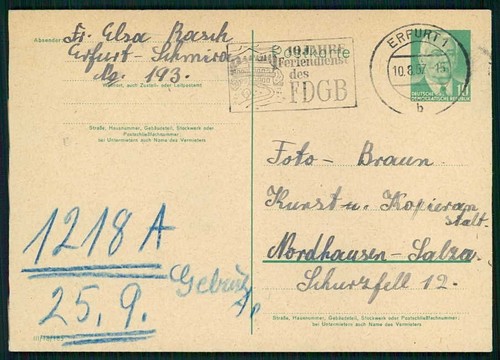 Absender: Fr. Elsa Rasch
Erfurt-Schmira
No. 193.
Wohnort, auch Zustell- oder Leitpostamt
Straße, Hausnummer, Gebäudeteil, Stockwerk oder
Postschließfachnummer;
bei Untermietern auch Name des Vermieters
Postkarte
10 JAHRE
Feriendienst
des
FDGB
ERFURT 1
10.8.57.-15
b
DEUTSCHE
DEMOKRATISCHE REPUBLIK
10
Foto - Braun
Kunst u. Kopieran
stalt.
Nordhausen-Salza.
Schurzfell 12.
1218 A
25. 9.
Straße, Hausnummer, Gebäudeteil, Stockwerk oder Postschließfachnummer;
bei Untermietern auch Name des Vermieters